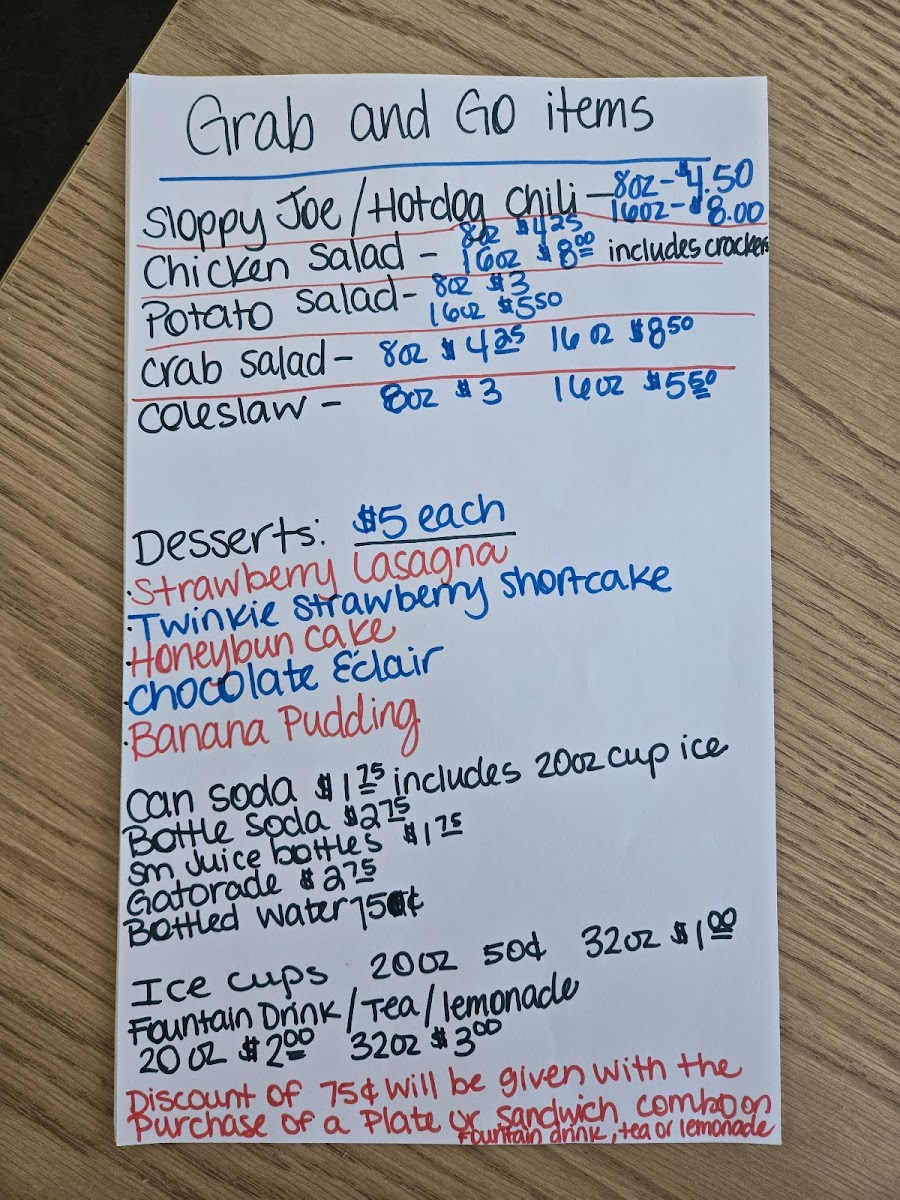 Grab and Go items
Sloppy Joe/Hotdog Chili - 8oz - $4.50
16oz - $8.00
Chicken Salad - 8oz $4.25
16oz $8.00 includes crackers
Potato Salad - 8oz $3
16oz $5.50
Crab Salad - 8oz $4.25 16oz $8.50
Coleslaw - 8oz $3 16oz $5.50
Desserts: $5 each
·Strawberry Lasagna
·Twinkie Strawberry Shortcake
·Honeybun Cake
·Chocolate Eclair
·Banana Pudding
Can Soda $1.75 includes 20oz cup ice
Bottle Soda $2.75
Sm Juice bottles $1.75
Gatorade $2.75
Bottled Water 75¢
Ice cups 20oz 50¢ 32oz $1.00
Fountain Drink/Tea/lemonade
20oz $2.00 32oz $3.00
Discount of 75¢ will be given with the
Purchase of a Plate or Sandwich combo on
Fountain drink, tea or lemonade